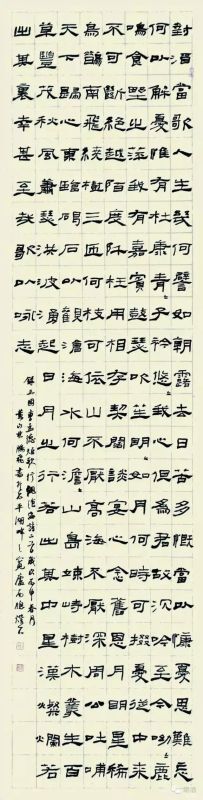 對酒當歌人生幾何譬如朝露去日苦多慨當以慷憂思難忘
何以解憂唯有杜康青々子衿悠々我心但為君故沈吟至今呦々鹿
鳴食野之苹我有嘉賓鼓瑟吹笙明々如月何時可掇憂從中來
不可斷絕越陌度阡枉用相存契闊談讌心念舊恩月明星稀
烏鵲南飛繞樹三匝何枝可依山不厭高海不厭深周公吐哺
天下歸心東臨碣石以觀滄海水何澹々山島竦峙樹木叢生百
草豐茂秋風蕭瑟洪波湧起日月之行若出其中星漢燦爛若
出其裏幸甚至哉歌以詠志
錄三國曹孟德短歌行觀滄海詩二首歲次丙申春月